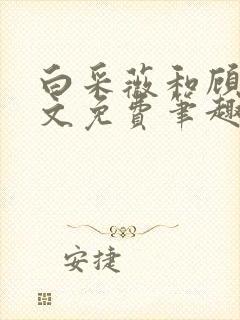 白采薇和顾
文免费笔趣
安捷